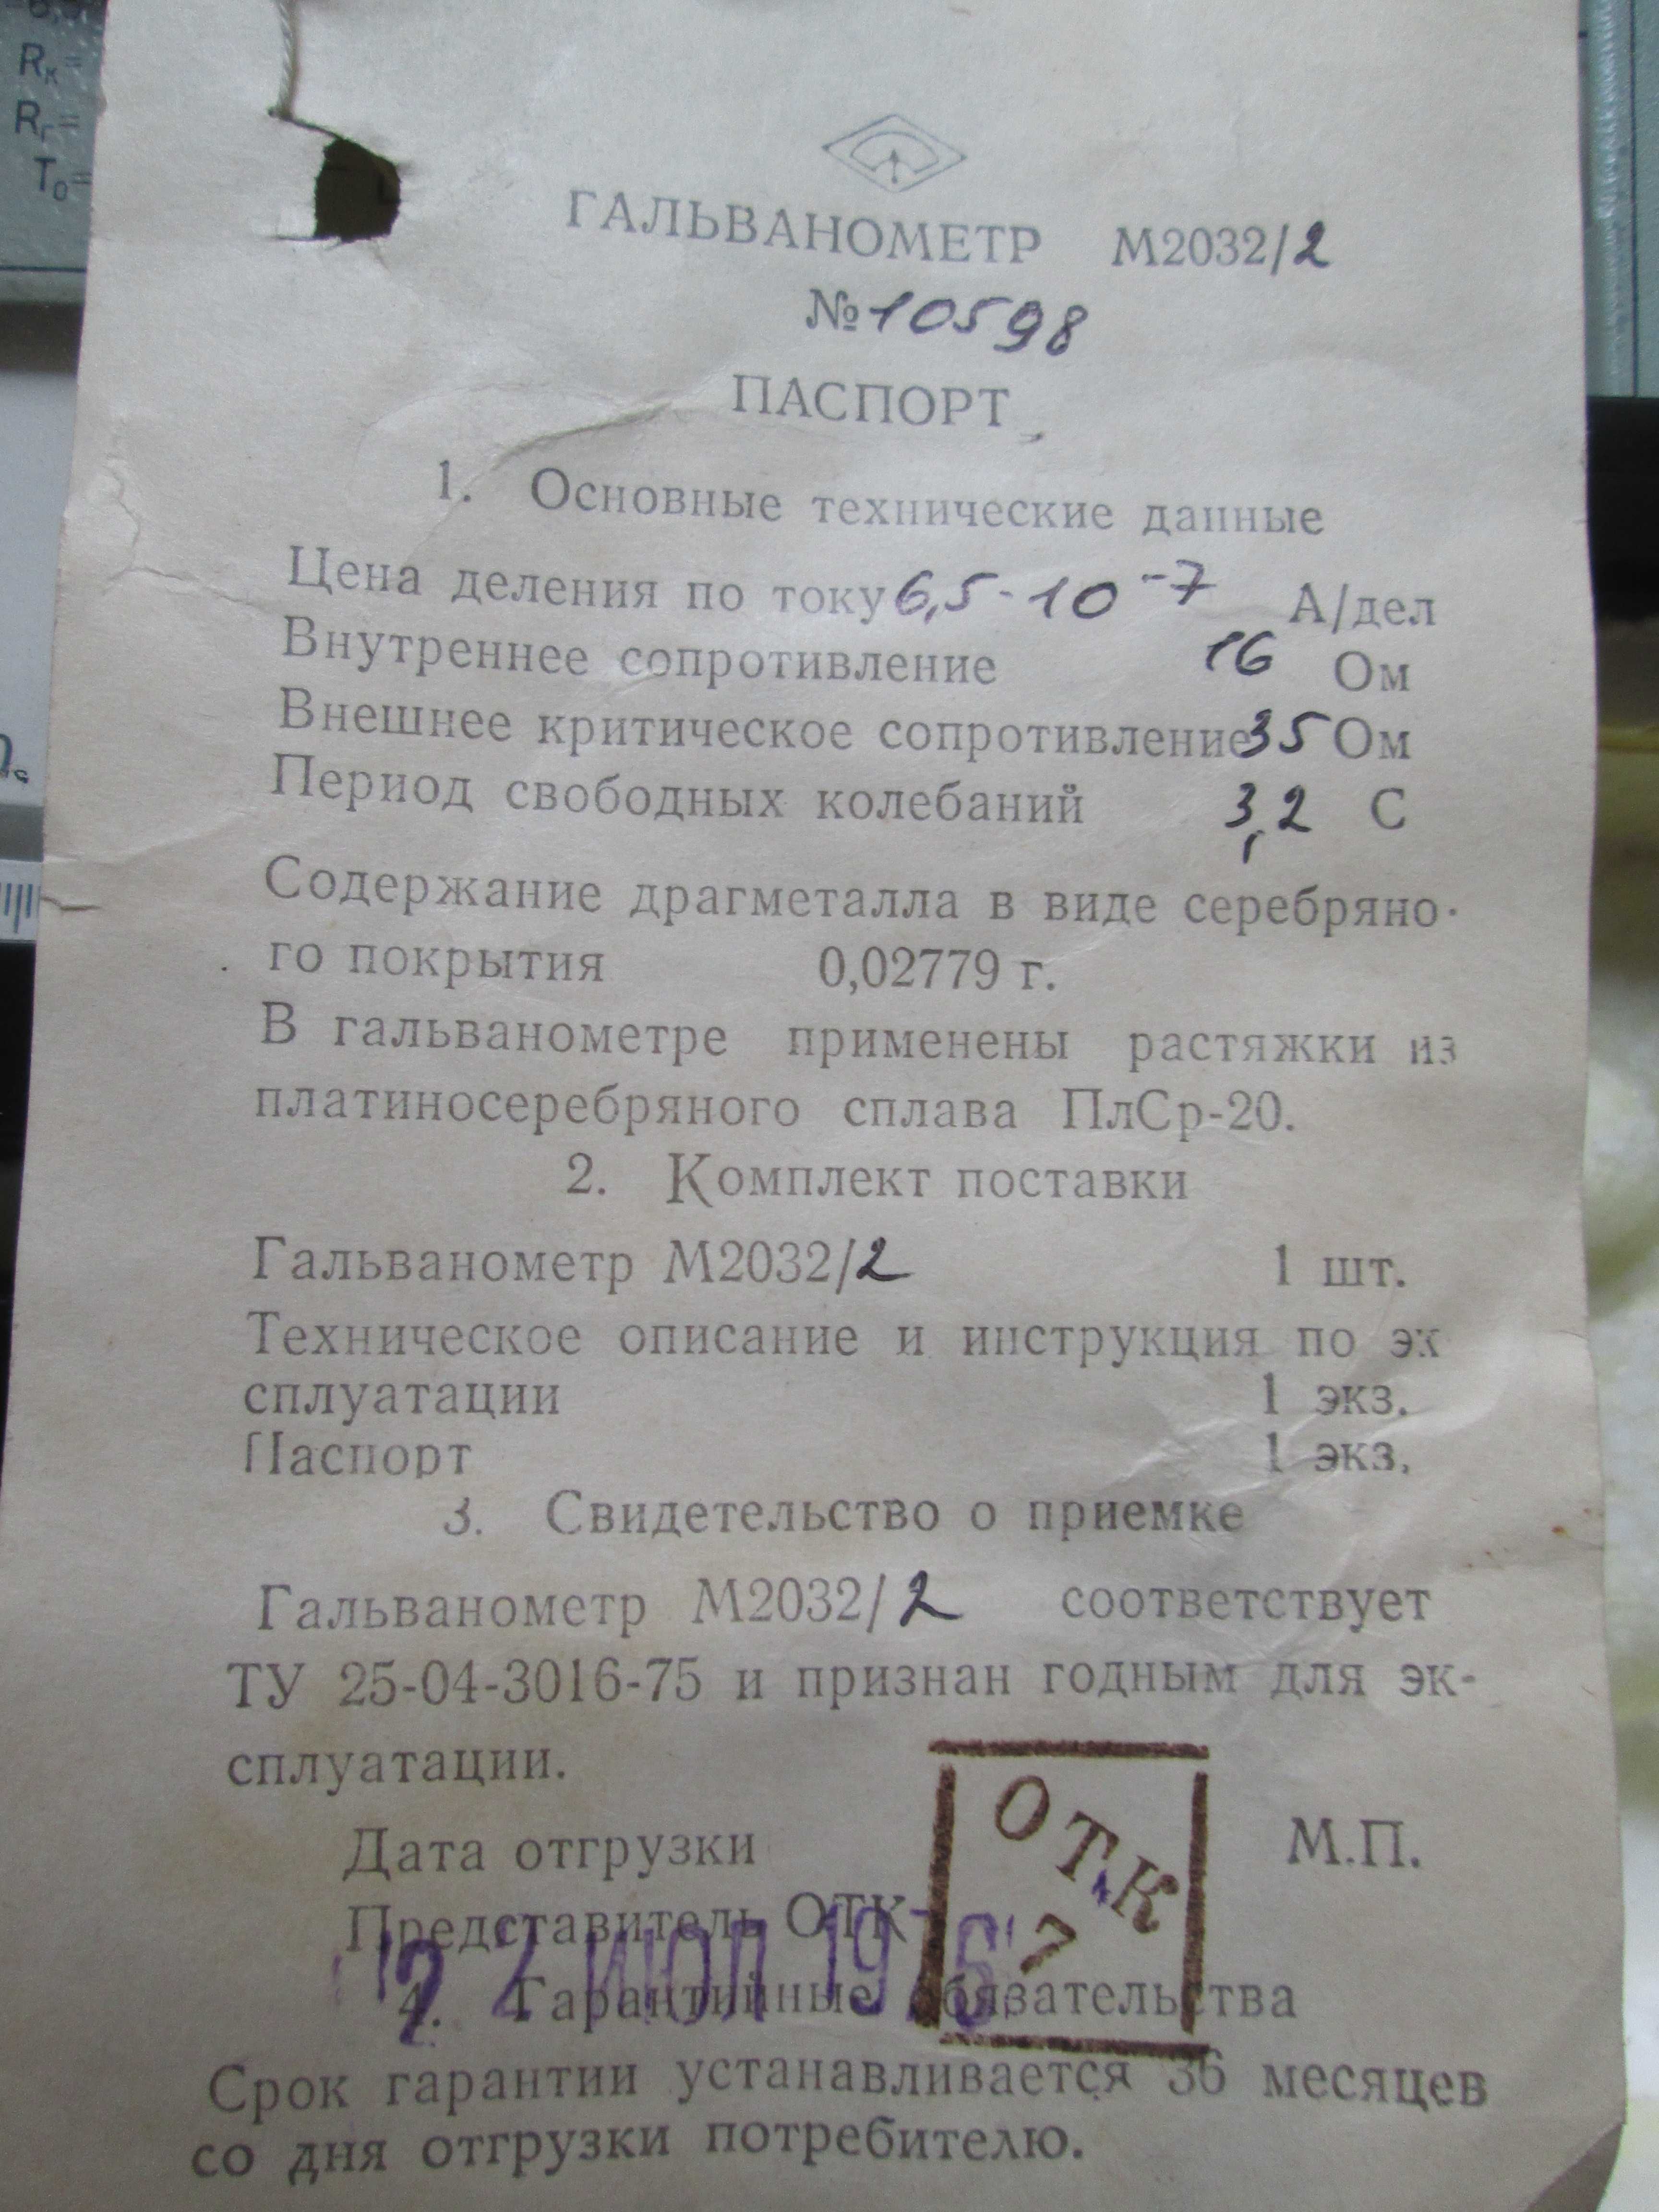 Rк=
Rг=
T₀=
ГАЛЬВАНОМЕТР М2032/2
№10598
ПАСПОРТ
1. Основные технические данные
Цена деления по току 6,5·10⁻⁷ А/дел
Внутреннее сопротивление 16 Ом
Внешнее критическое сопротивление 35 Ом
Период свободных колебаний 3,2 С
Содержание драгметалла в виде серебряно-
го покрытия 0,02779 г.
В гальванометре применены растяжки из
платиносеребряного сплава ПлСр-20.
2. Комплект поставки
Гальванометр М2032/2 1 шт.
Техническое описание и инструкция по эк
сплуатации 1 экз.
Паспорт 1 экз.
3. Свидетельство о приемке
Гальванометр М2032/2 соответствует
ТУ 25-04-3016-75 и признан годным для эк-
сплуатации.
Дата отгрузки М.П.
ОТК
7
Представитель ОТК
ИЮЛ 1976
4. Гарантийные обязательства
Срок гарантии устанавливается 36 месяцев
со дня отгрузки потребителю.